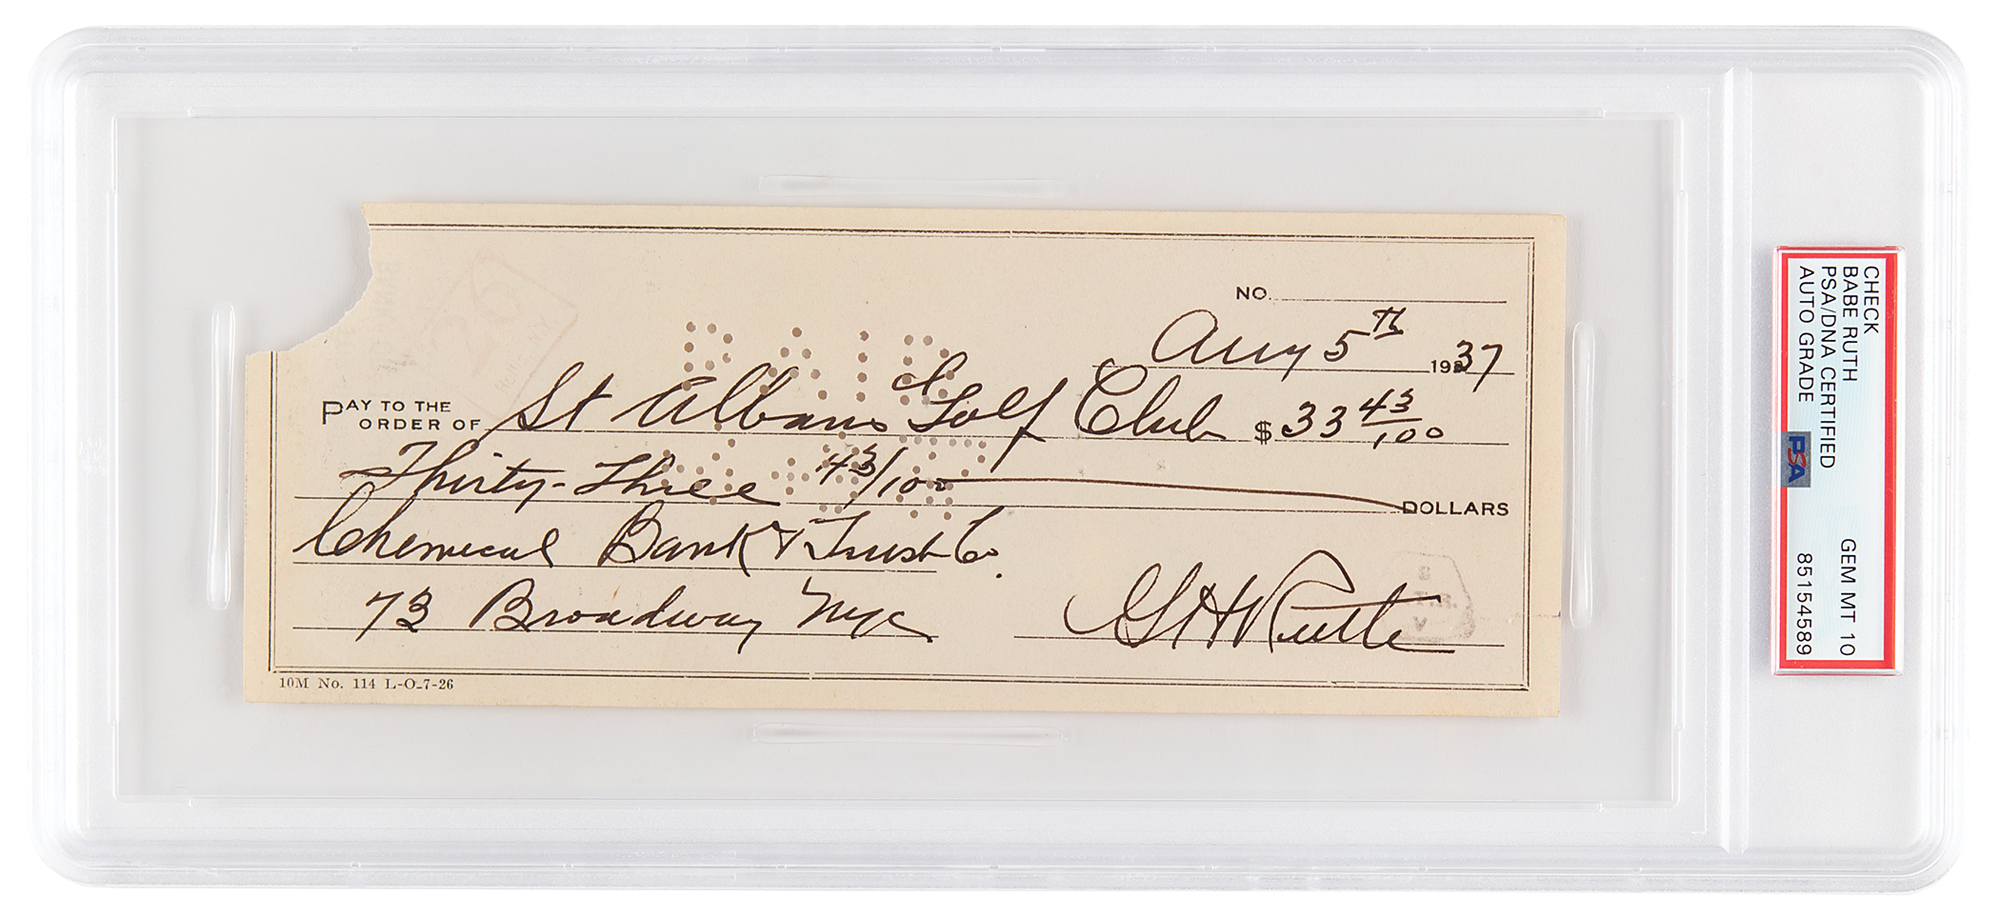 NO.
Aug 5th 1937
PAY TO THE
ORDER OF St Albans Golf Club $33 43/100
Thirty-three 43/100 DOLLARS
Chemical Bank & Trust Co.
73 Broadway Nyc
GH Ruth
10M No. 114 L-O-7-26
PAID
26
CHECK
BABE RUTH
PSA/DNA CERTIFIED
AUTO GRADE
PSA
GEM MT 10
85154589